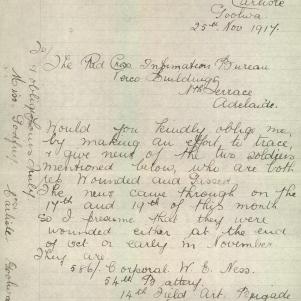 Carlisle
Goolwa
25th Nov 1917.
To/
The Red Cross Information Bureau
Verco Buildings
Nth Terrace
Adelaide.
Would you kindly oblige me,
by making an effort to trace,
& give news of the two soldiers
mentioned below, who are both
rep. Wounded and Gassed
The news came through on the
17th and 19th of this month
So I presume that they were
wounded either at the end
of Oct or early in November
They are
586/ Corporal W. E. Ness.
54th Battery.
14th Field Art. Brigade
& oblige Yours truly
Miss Godfrey
Carlisle Goolwa